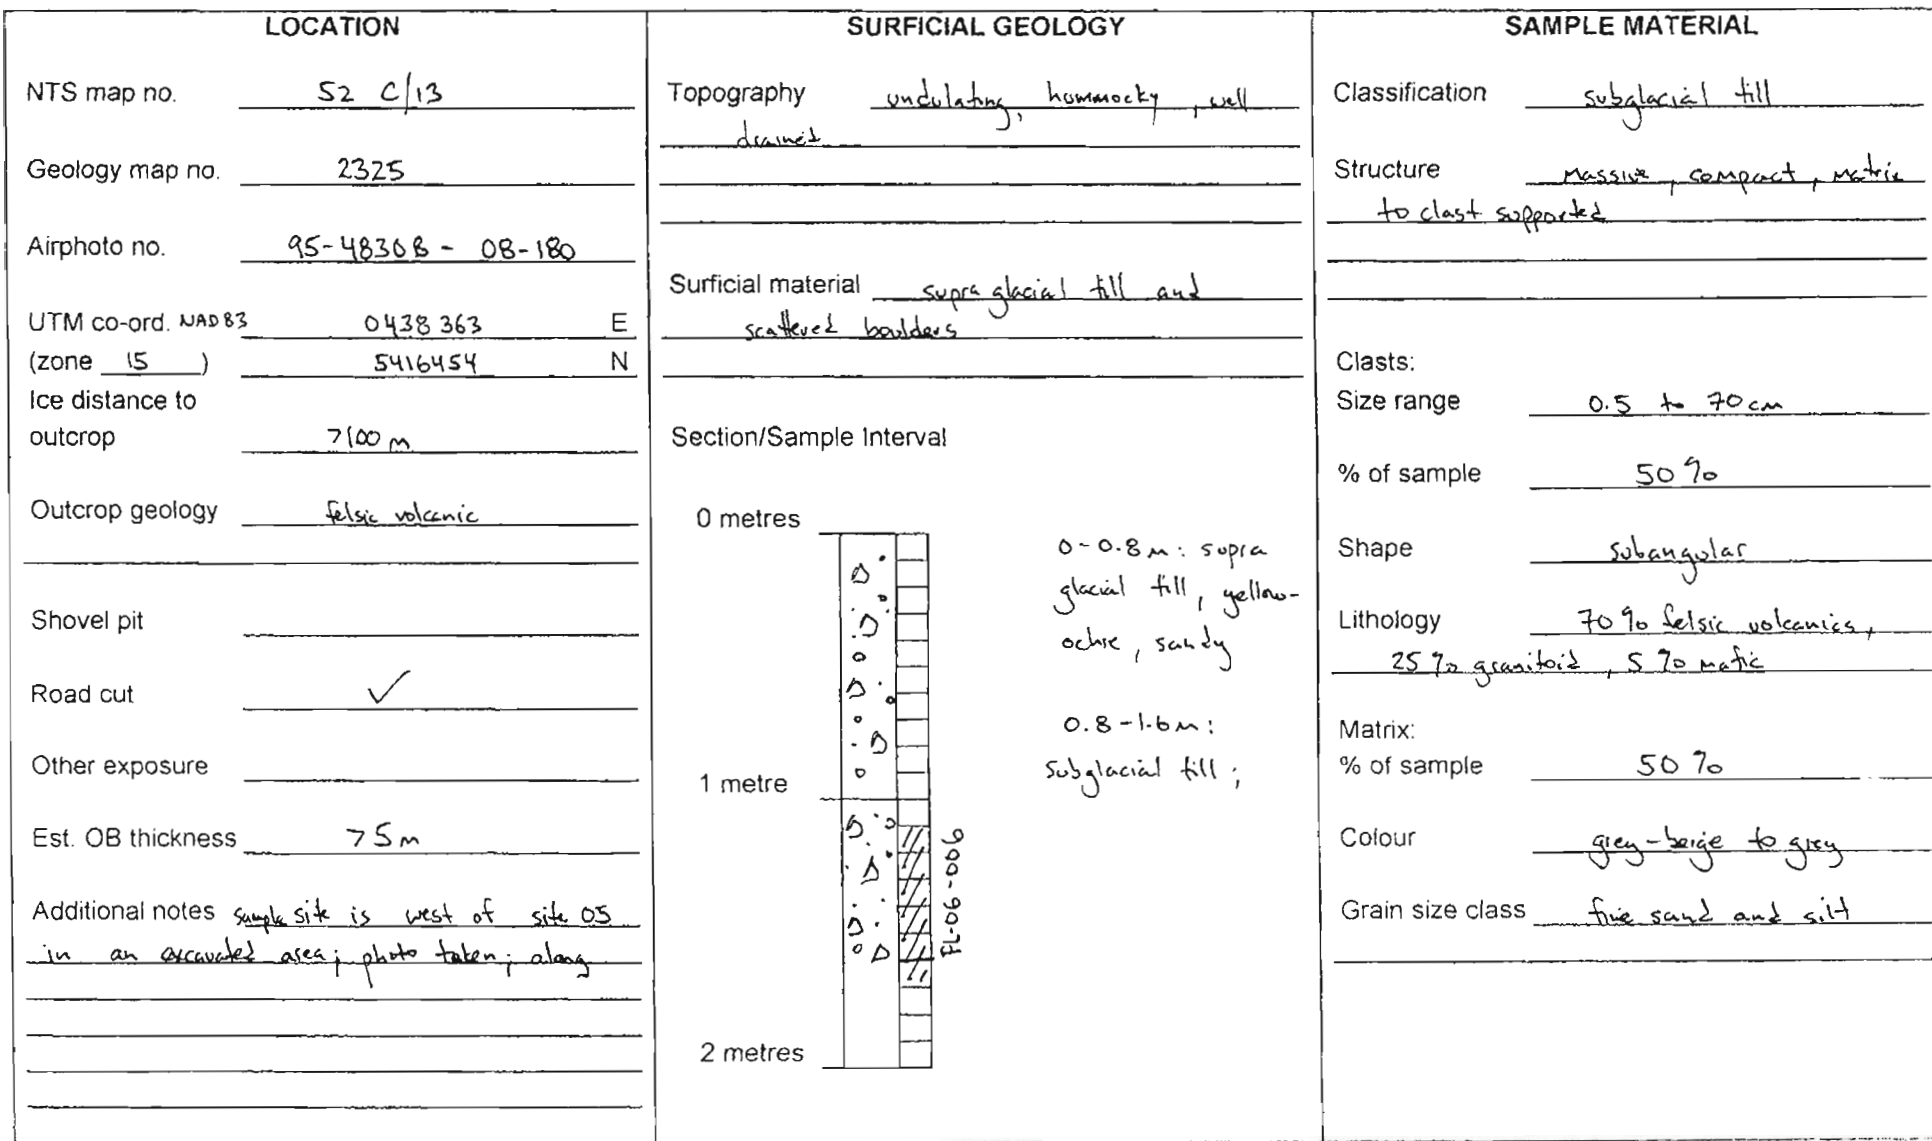 LOCATION
NTS map no. 52 C/13
Geology map no. 2325
Airphoto no. 95-4830B - 08-180
UTM co-ord. NAD83 0438 363 E
(zone 15) 5416454 N
Ice distance to
outcrop >100 m
Outcrop geology felsic volcanic
Shovel pit
Road cut ✓
Other exposure
Est. OB thickness >5m
Additional notes sample site is west of site 05
in an excavated area; photo taken; along
SURFICIAL GEOLOGY
Topography undulating, hummocky, well
drained
Surficial material supra glacial till and
scattered boulders
Section/Sample Interval
0 metres
1 metre
2 metres
0-0.8m: supra
glacial till, yellow-
ochre, sandy
0.8-1.6m:
subglacial till;
FL-06-006
SAMPLE MATERIAL
Classification subglacial till
Structure Massive, compact, matrix
to clast supported
Clasts:
Size range 0.5 to 70cm
% of sample 50%
Shape subangular
Lithology 70% felsic volcanics,
25% granitoid, 5% mafic
Matrix:
% of sample 50%
Colour grey-beige to grey
Grain size class fine sand and silt